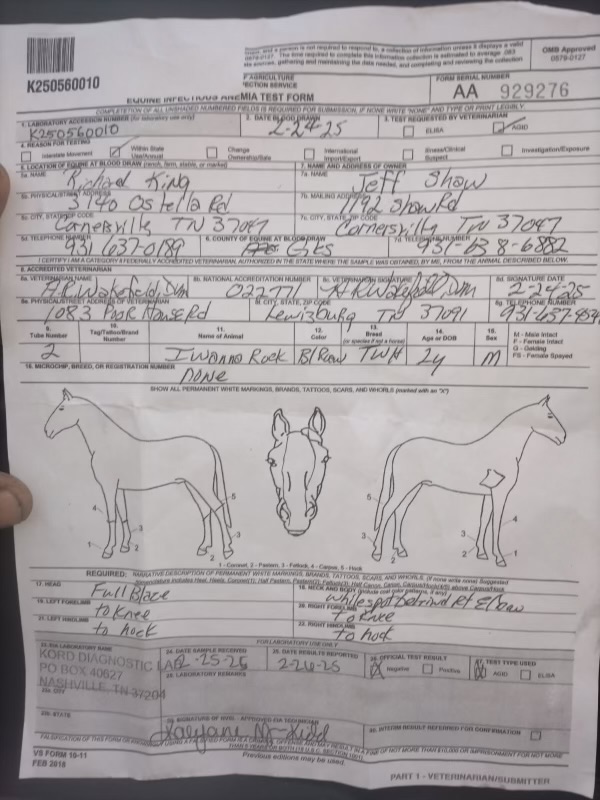 K250560010
a person is not required to respond to, a collection of information unless it displays a valid
0579-0127. The time required to complete this information collection is estimated to average .083
gathering and maintaining the data needed, and completing and reviewing the collection
OMB Approved
0579-0127
AGRICULTURE
SERVICE
EQUINE INFECTIOUS ANEMIA TEST FORM
FORM SERIAL NUMBER
AA 929276
COMPLETION OF ALL UNSHADED NUMBERED FIELDS IS REQUIRED FOR SUBMISSION. IF NONE WRITE "NONE" AND TYPE OR PRINT LEGIBLY.
1. LABORATORY ACCESSION NUMBER (for laboratory use only)
K250560010
2. DATE BLOOD DRAWN
2-24-25
3. TEST REQUESTED BY VETERINARIAN
ELISA
AGID
4. REASON FOR TESTING
Interstate Movement
Within State Use/Annual
Change Ownership/Sale
International Import/Export
Illness/Clinical Suspect
Investigation/Exposure
5. LOCATION OF EQUINE AT BLOOD DRAW (ranch, farm, stable, or market)
7. NAME AND ADDRESS OF OWNER
5a. NAME
Richard King
7a. NAME
Jeff Shaw
5b. PHYSICAL/STREET ADDRESS
3140 Ostella Rd
7b. MAILING ADDRESS
Shaw Rd
5c. CITY, STATE, ZIP CODE
Cornersville TN 37047
7c. CITY, STATE, ZIP CODE
Cornersville TN 37047
5d. TELEPHONE NUMBER
931-637-0189
6. COUNTY OF EQUINE AT BLOOD DRAW
7d. TELEPHONE NUMBER
I CERTIFY I AM CATEGORY II FEDERALLY ACCREDITED VETERINARIAN, AUTHORIZED IN THE STATE WHERE THE SAMPLE WAS OBTAINED, BY ME, FROM THE ANIMAL DESCRIBED BELOW.
8. ACCREDITED VETERINARIAN
8a. VETERINARIAN NAME
Wakefield, Dvm
8b. NATIONAL ACCREDITATION NUMBER
022771
8c. VETERINARIAN SIGNATURE
Wakefield, Dvm
8d. SIGNATURE DATE
2-24-25
8e. PHYSICAL/STREET ADDRESS OF VETERINARIAN
1083 Poor House Rd
8f. CITY, STATE, ZIP CODE
Lewisburg TN 37091
8g. TELEPHONE NUMBER
9. Tube Number
10. Tag/Tattoo/Brand Number
11. Name of Animal
12. Color
13. Breed (or species if not a horse)
14. Age or DOB
15. Sex
M - Male Intact
F - Female Intact
G - Gelding
FS - Female Spayed
2
I Wanna Rock
TWH
2y
M
16. MICROCHIP, BREED, OR REGISTRATION NUMBER
none
SHOW ALL PERMANENT WHITE MARKINGS, BRANDS, TATTOOS, SCARS, AND WHORLS (marked with an "X")
4
3
1
2
5
3
2
5
3
2
4
3
1
1 - Coronet, 2 - Pastern, 3 - Fetlock, 4 - Carpus, 5 - Hock
REQUIRED: NARRATIVE DESCRIPTION OF PERMANENT WHITE MARKINGS, BRANDS, TATTOOS, SCARS, AND WHORLS. (If none write none) Suggested
17. HEAD
Full Blaze
18. NECK AND BODY
White spot behind Rt Elbow
19. LEFT FORELIMB
to knee
20. RIGHT FORELIMB
to knee
21. LEFT HINDLIMB
to hock
22. RIGHT HINDLIMB
to hock
FOR LABORATORY USE ONLY
23. EIA LABORATORY NAME
KORD DIAGNOSTIC LAB
PO BOX 40627
NASHVILLE, TN 37204
23a. CITY
23b. STATE
24. DATE SAMPLE RECEIVED
25. DATE RESULTS REPORTED
2-26-25
26. OFFICIAL TEST RESULT
Negative
Positive
27. TEST TYPE USED
AGID
ELISA
28. LABORATORY REMARKS
30. INTERIM RESULT REFERRED FOR CONFIRMATION
VS FORM 10-11
FEB 2018
Previous editions may be used.
PART 1 - VETERINARIAN/SUBMITTER